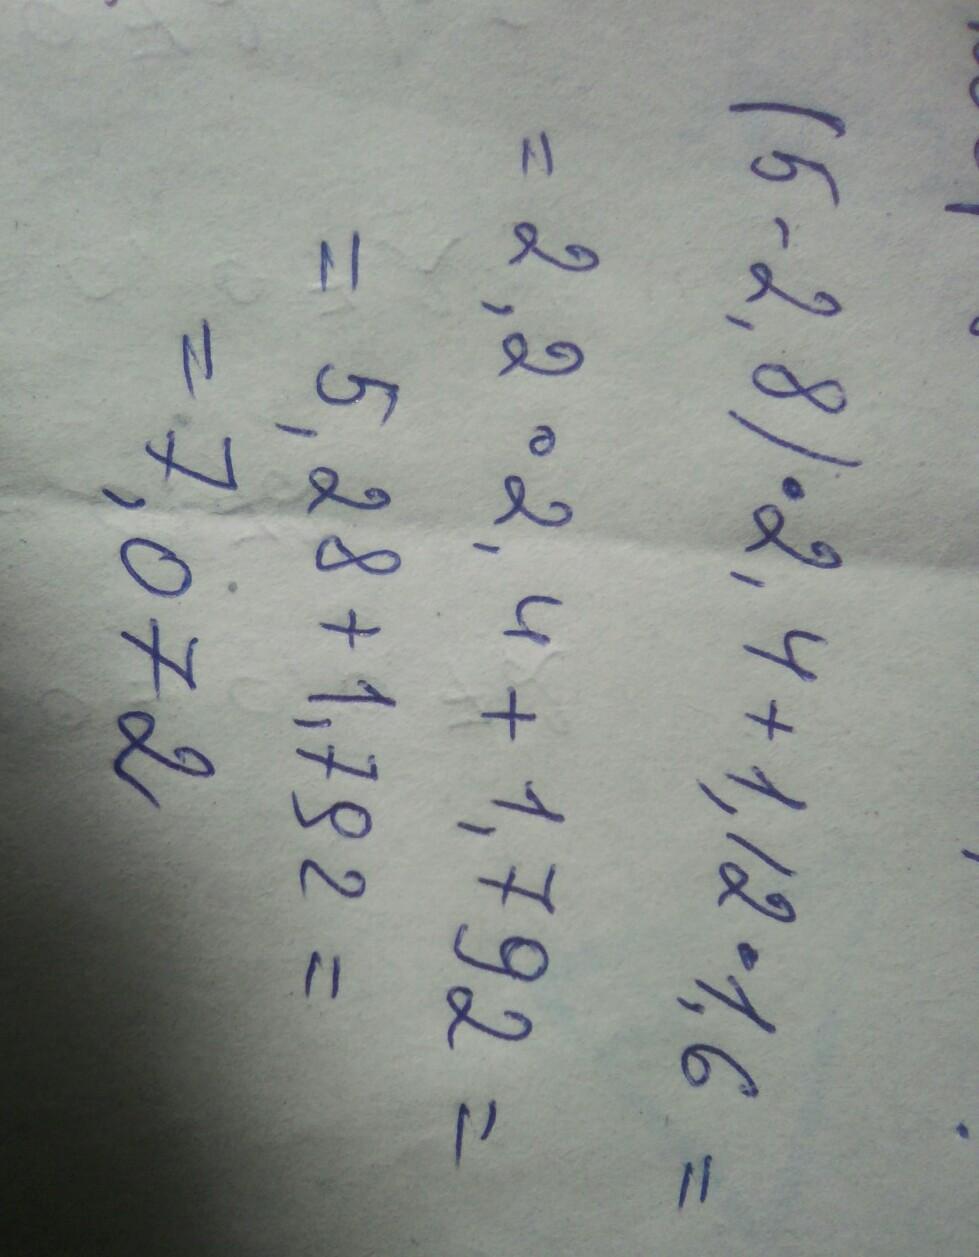 (5-2,8)·2,4+1,12·1,6=
=2,2·2,4+1,792=
=5,28+1,792=
=7,072